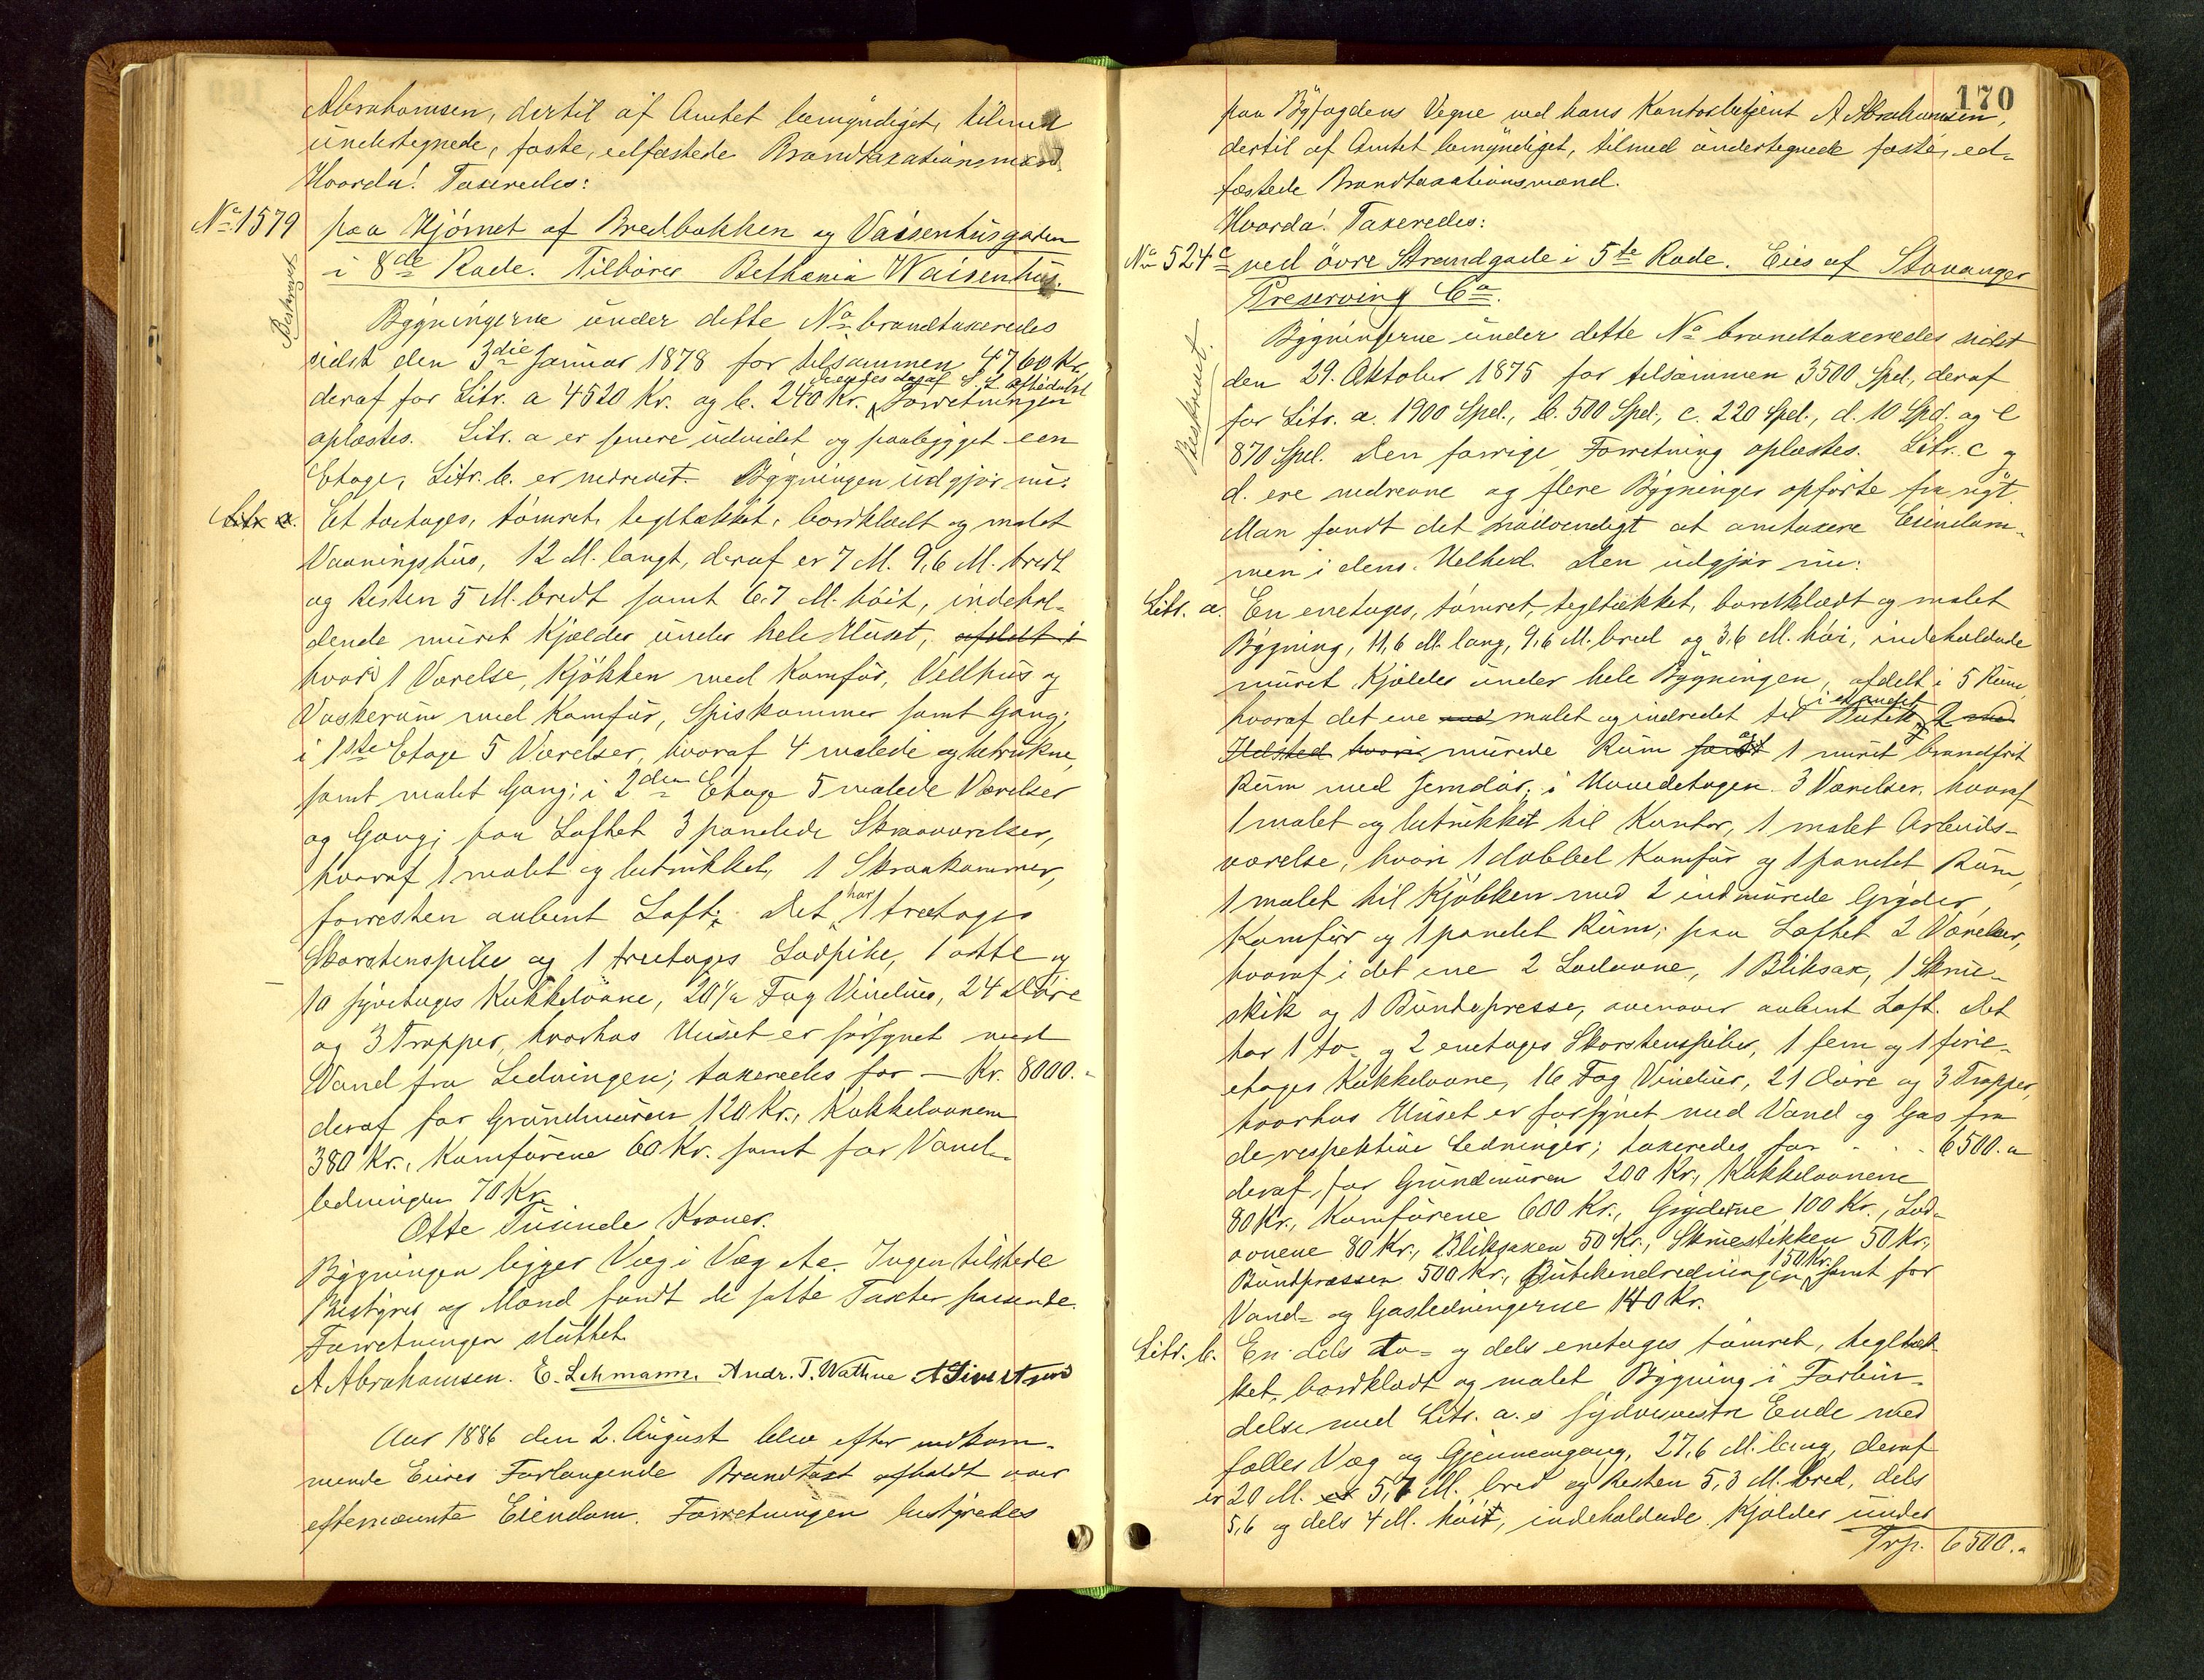 Abrahamsen, dertil af Amtet bemyndiget, tilmed
undertegnede, faste, edfæstede Brandtaxationsmænd.
Hvorda! Taxeredes:
No 1579 paa Hjørnet af Bredbakken og Vaisenhusgaden
i 8de Rode. Tilhører Bethania Waisenhus.
Beskrevet
Bygningerne under dette No brandtaxeredes
sidst den 3die Januar 1878 for tilsammen 4760 Kr.
deraf for Litr. a 4520 Kr. og b. 240 Kr. Forretningen
oplæstes. Litr. a er senere udvidet og paabygget een
Etage, Litr. b. er nedrevet. Bygningen udgjør nu:
Litr a. Et toetages, tømret, tegltækket, bordklædt og malet
Vaaningshus, 12 M. langt, deraf er 7 M. 9,6 M. bredt
og Resten 5 M. bredt samt 6,7 M. høit, indehol-
dende muret Kjælder under hele Huset, afdelt i
hvori 1 Værelse, Kjøkken med Komfur, Vedhus og
Vaskerum med Komfur, Spiskammer samt Gang;
i 1ste Etage 5 Værelser, hvoraf 4 malede og betrukne,
samt malet Gang; i 2den Etage 5 malede Værelser
og Gang; paa Loftet 3 panelede Skraaværelser,
hvoraf 1 malet og betrukket, 1 Skraakammer,
forresten aabent Loft. Det har 1 treetages
Skorstenspibe og 1 treetages Lodpibe, 1 otte og
10 syvetages Kakkelovne, 20 1/2 Fag Vinduer, 24 Døre
og 3 Trapper, hvorhos Huset er forsynet med
Vand fra Ledningen; taxeredes for — Kr. 8000.-
deraf for Grundmuren 120 Kr., Kakkelovnene
380 Kr., Komfurene 60 Kr. samt for Vand-
ledningen 70 Kr.
Otte Tusinde Kroner.
Bygningen ligger Væg i Væg etc. Ingen tilstede
Bestyrer og Mænd fandt de satte Taxter passende.
Forretningen sluttet.
A Abrahamsen. E. Lehmann. Andr. T. Wathne
Aar 1886 den 2. August blev efter indkom-
mende Eieres Forlangende Brandtaxt afholdt over
eftenævnte Eiendom. Forretningen bestyredes
170
paa Byfogdens Vegne ved hans Kontorbetjent A Abrahamsen,
dertil af Amtet bemyndiget, tilmed undertegnede faste, ed-
fæstede Brandtaxationsmænd.
Hvorda! Taxeredes:
No 524c ved øvre Strandgade i 5te Rode. Eies af Stavanger
Preserving Co.
Beskrevet.
Bygningerne under dette No brandtaxeredes sidst
den 29. Oktober 1875 for tilsammen 3500 Spd., deraf
for Litr. a. 1900 Spd., b. 500 Spd., c. 220 Spd., d. 10 Spd. og e
870 Spd. Den forrige Forretning oplæstes. Litr. c og
d. ere nedrevne og flere Bygninger opførte fra nyt.
Man fandt det nødvendigt at omtaxere Eiendom-
men i dens Helhed. Den udgjør nu:
Litr. a. En eenetages, tømret, tegltækket, bordklædt og malet
Bygning, 11,6 M. lang, 9,6 M. bred og 3,6 M. høi, indeholdende
muret Kjælder under hele Bygningen, afdelt i 5 Rum,
hvoraf det ene malet og indredet til Butik, i et andet
Ildsted hvori murede Rum samt og 1 muret brandfrit
Rum med Jerndør; i Hovedetagen 3 Værelser, hvoraf
1 malet og betrukket til Kontor, 1 malet Arbeids-
værelse, hvori 1 dobbel Komfur og 1 panelet Rum,
1 malet til Kjøkken med 2 indmurede Gryder,
Komfur og 1 panelet Rum; paa Loftet 2 Værelser,
hvoraf i det ene 2 Lodovne, 1 Bliksax, 1 Skrue-
stik og 1 Bundepresse, ovenover aabent Loft. Det
har 1 to- og 2 enetages Skorstenspiber, 1 fem og 1 fire-
etages Kakkelovne, 16 Fag Vinduer, 21 Døre og 3 Trapper,
hvorhos Huset er forsynet med Vand og Gas fra
de respektive Ledninger; taxeredes for . . . 6500.-
deraf for Grundmuren 200 Kr., Kakkelovnene
80 Kr., Komfurene 600 Kr., Gryderne 100 Kr., Lod-
ovnene 80 Kr., Bliksaxen 50 Kr., Skruestikken 50 Kr.,
Bundpressen 500 Kr., Butikindredningen 150 Kr. samt for
Vand- og Gasledningerne 140 Kr.
Litr. b. En dels to- og dels enetages tømret, tegltæk-
ket, bordklædt og malet Bygning i Forbin-
delse med Litr. a.s sydvestre Ende med
fælles Væg og Gjennemgang, 27,6 M. lang, deraf
er 20 M. 5,7 M. bred og Resten 5,3 M. bred, dels
5,6 og dels 4 M. høit, indeholdende Kjælder under
Trp. 6500.-